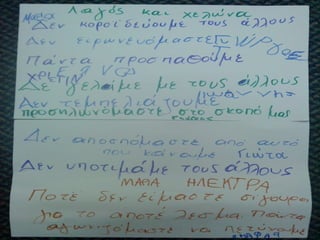 Μάθια Λαγός και χελώνα
Δεν κοροϊδεύουμε τους άλλους
Δεν ειρωνευόμαστε Γιώργος
Πάντα προσπαθούμε
Δε γελάμε με τους άλλους
Δεν τεμπελιάζουμε
προσηλωνόμαστε στο σκοπό μας
Δεν αποσπόμαστε από αυτό
που κάνουμε Γιώτα
Δεν υποτιμάμε τους άλλους
ΜΑΘΙΑ ΗΛΕΚΤΡΑ
Ποτέ δεν είμαστε σίγουροι
για το αποτέλεσμα. Πάντα
αγωνιζόμαστε να πετύχουμε